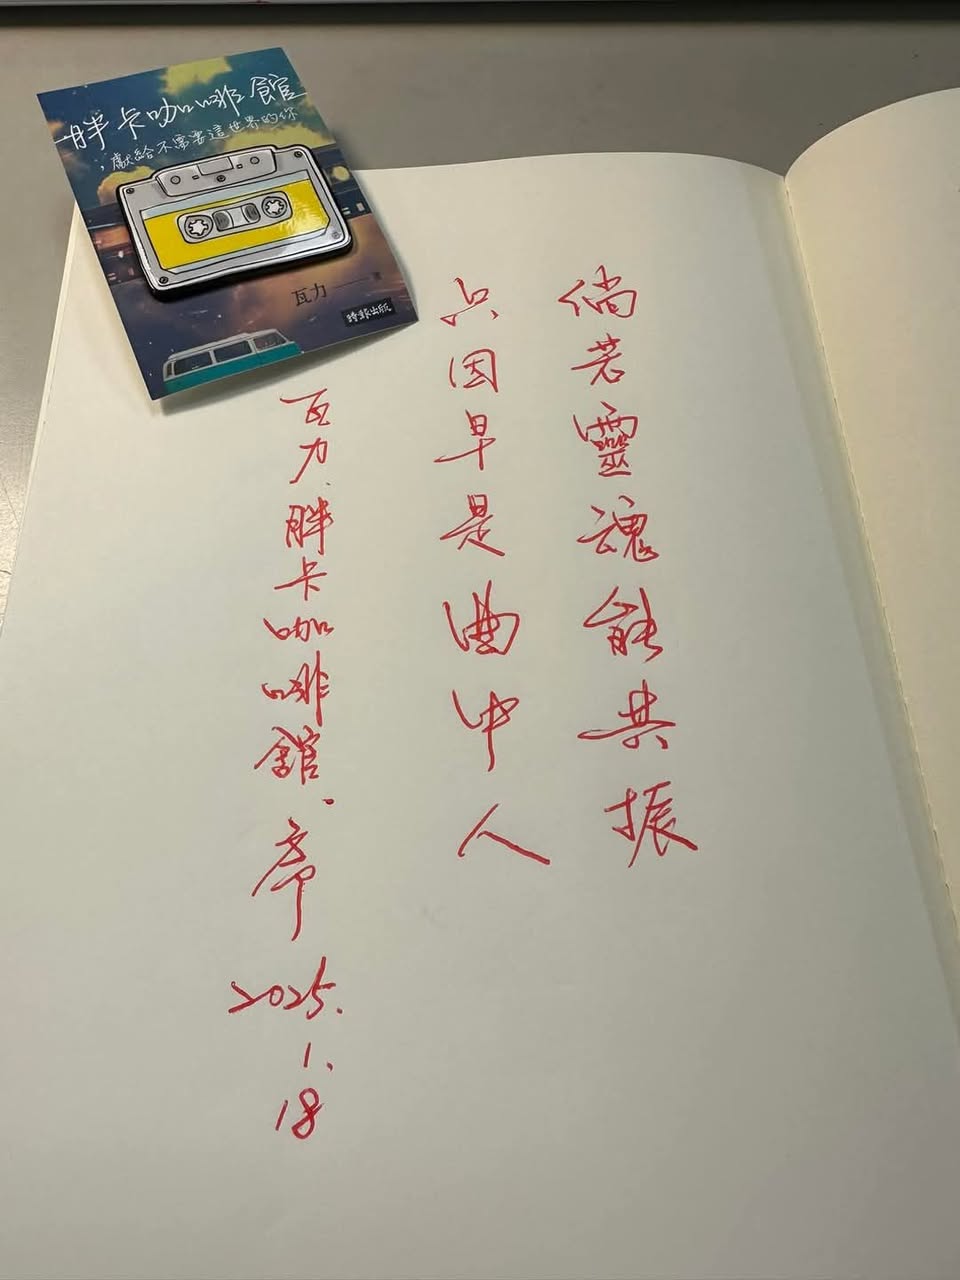 胖卡咖啡館
，獻給不需要這世界的你
瓦力
時報出版
倘若靈魂能共振
只因早是曲中人
瓦力、胖卡咖啡館、序
2025.
1.
18